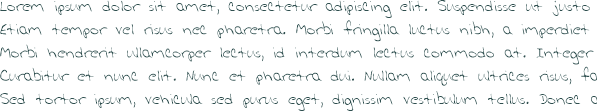 Lorem ipsum dolor sit amet, consectetur adipiscing elit. Suspendisse ut justo
Etiam tempor vel risus nec pharetra. Morbi fringilla luctus nibh, a imperdiet
Morbi hendrerit ullamcorper lectus, id interdum lectus commodo at. Integer
Curabitur et nunc elit. Nunc et pharetra dui. Nullam aliquet ultrices risus,
Sed tortor ipsum, vehicula sed purus eget, dignissim vestibulum tellus. Donec